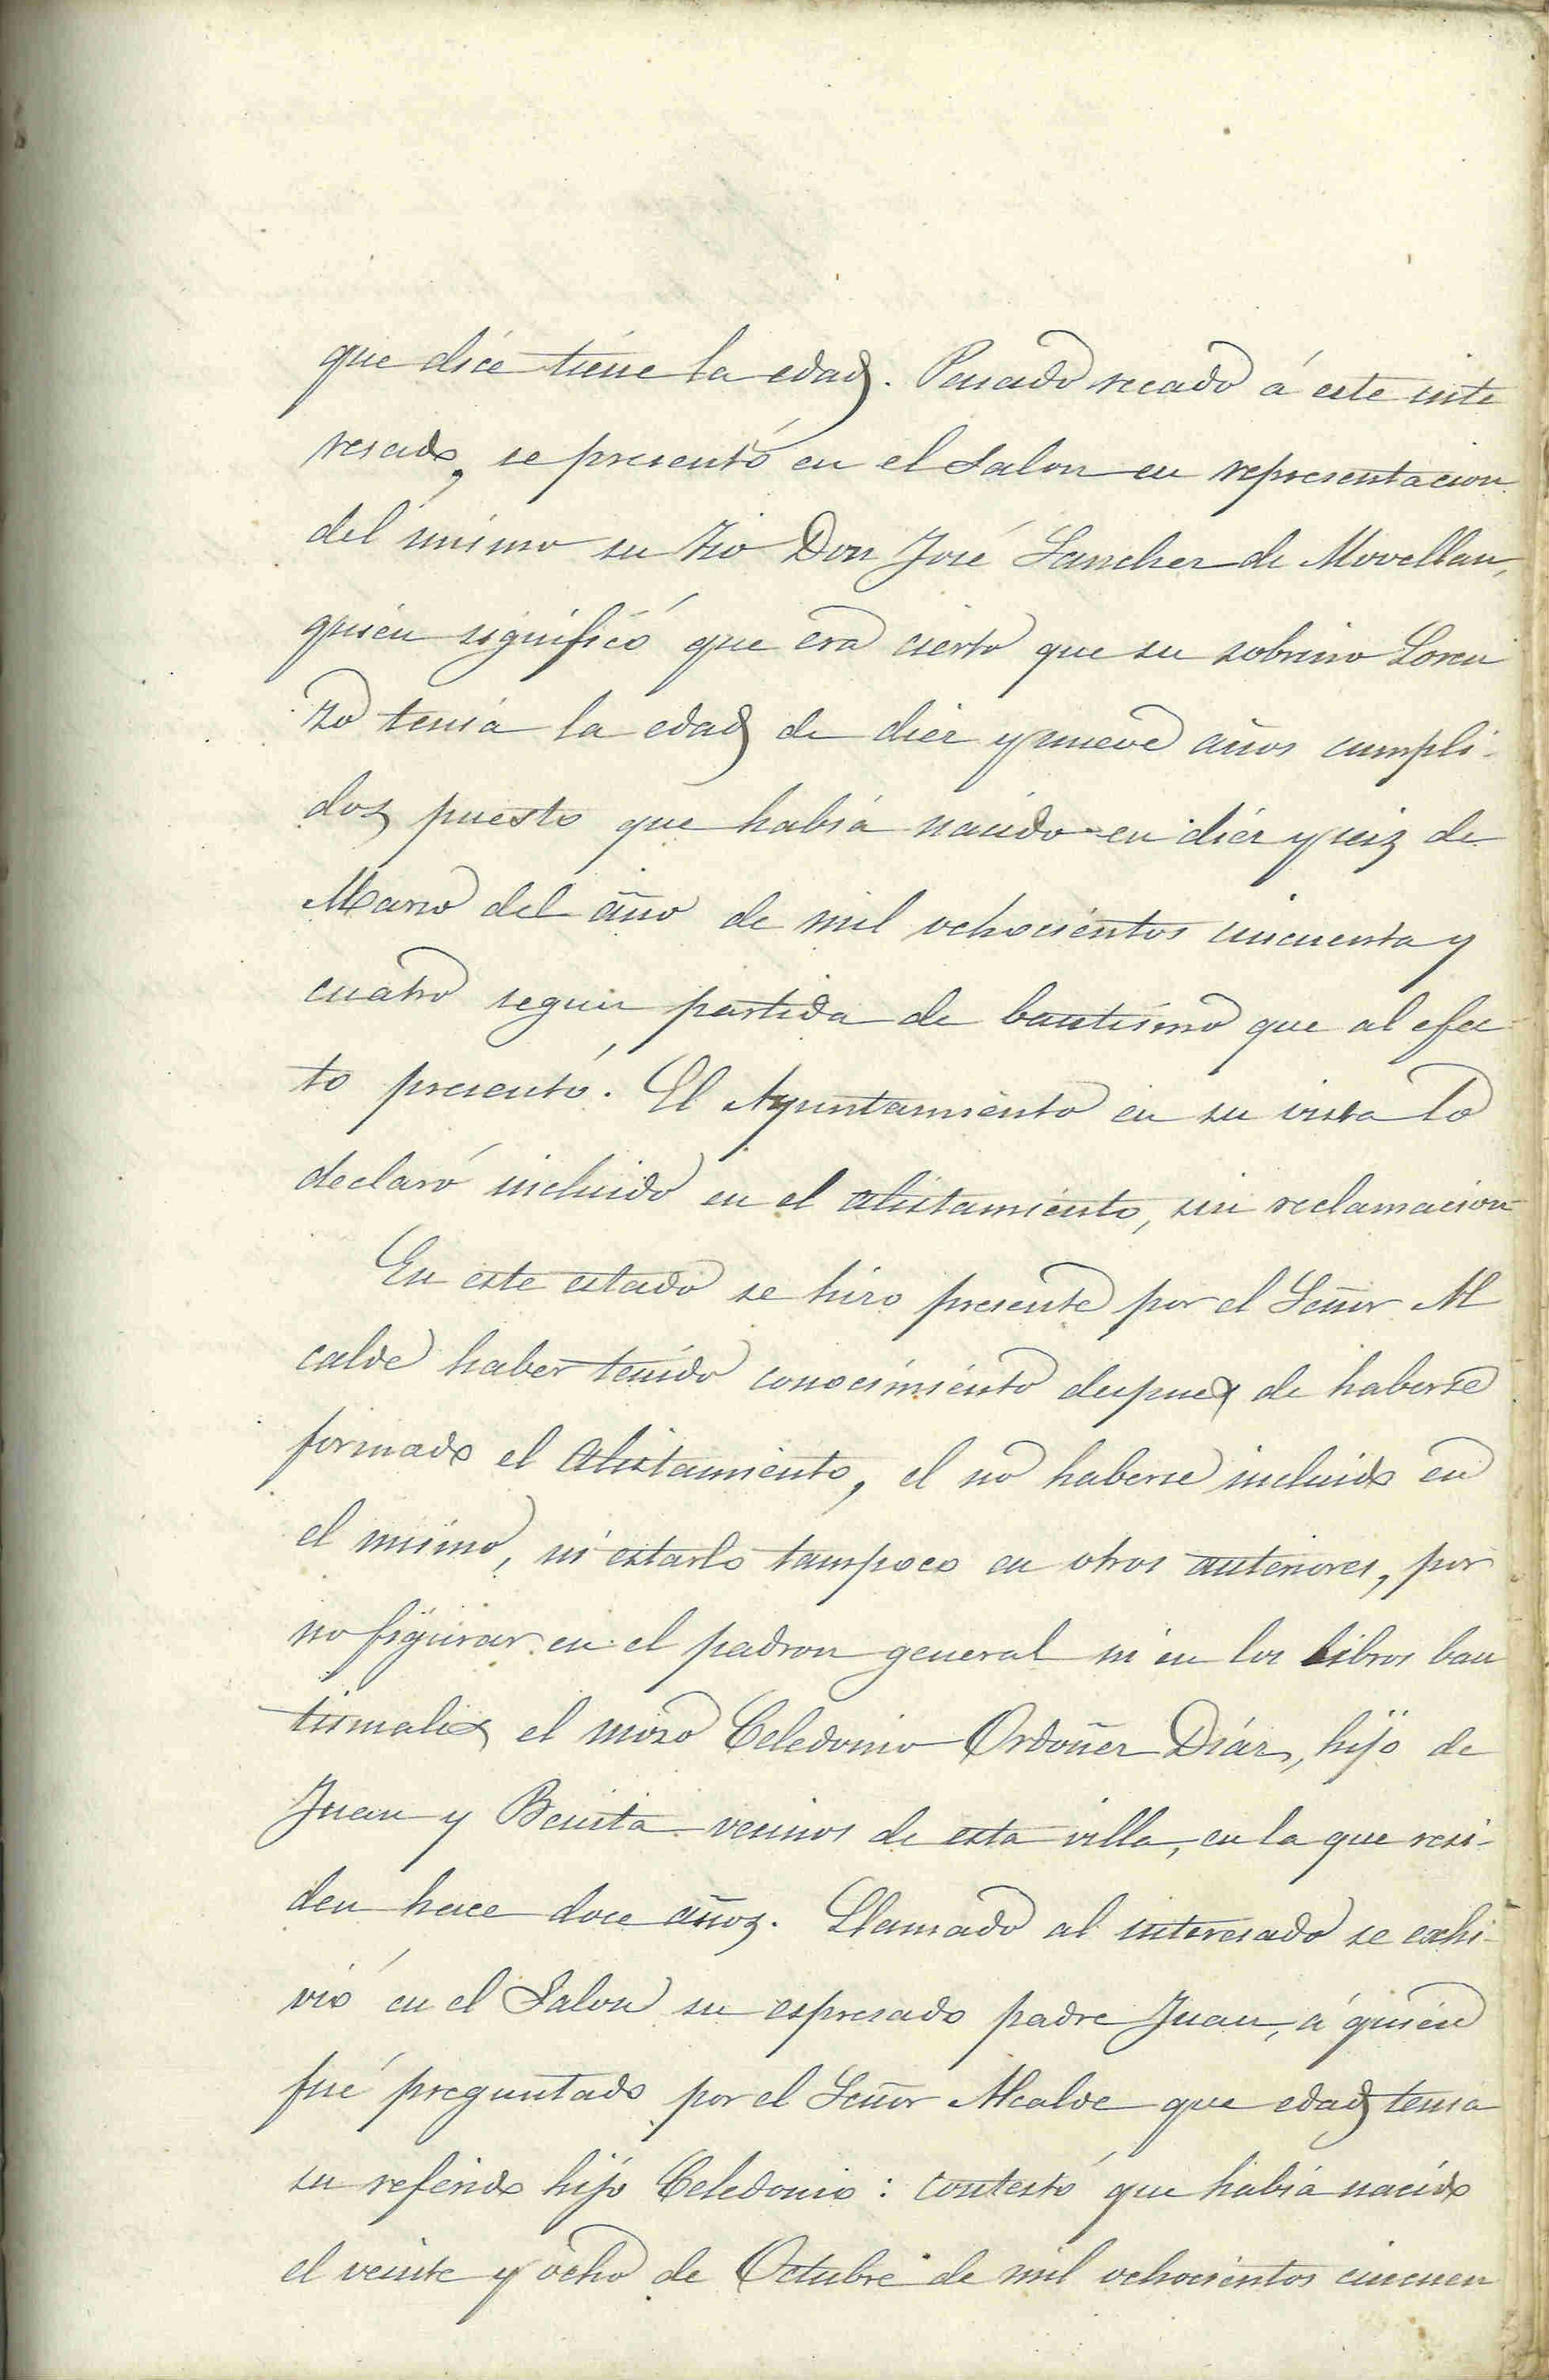 que dice tiene la edad. Pasado recado á este inte
resado, se presentó en el Salon en representacion
del mismo su tio Don José Sanchez de Movellan,
quien significó que era cierto que su sobrino Loren
zo tenia la edad de diez y nueve años cumpli-
dos puesto que habia nacido en diez y seis de
Marzo del año de mil ochocientos cincuenta y
cuatro segun partida de bautismo que al efec
to presentó. El Ayuntamiento en su vista lo
declaró incluido en el alistamiento, sin reclamacion
En este estado se hizo presente por el Señor Al
calde haber tenido conocimiento despues de haberse
formado el Alistamiento, el no haberse incluido en
el mismo, ni estarlo tampoco en otros anteriores, por
no figurar en el padron general ni en los libros bau
tismales el mozo Celedonio Ordoñez Diáz, hijo de
Juan y Benita vecinos de esta villa, en la que resi-
den hace doce años. Llamado al interesado se exhi-
vió en el Salon su espresado padre Juan, á quien
fué preguntado por el Señor Alcalde que edad tenia
su referido hijo Celedonio: contestó que habia nacido
el veinte y ocho de Octubre de mil ochocientos cincuen